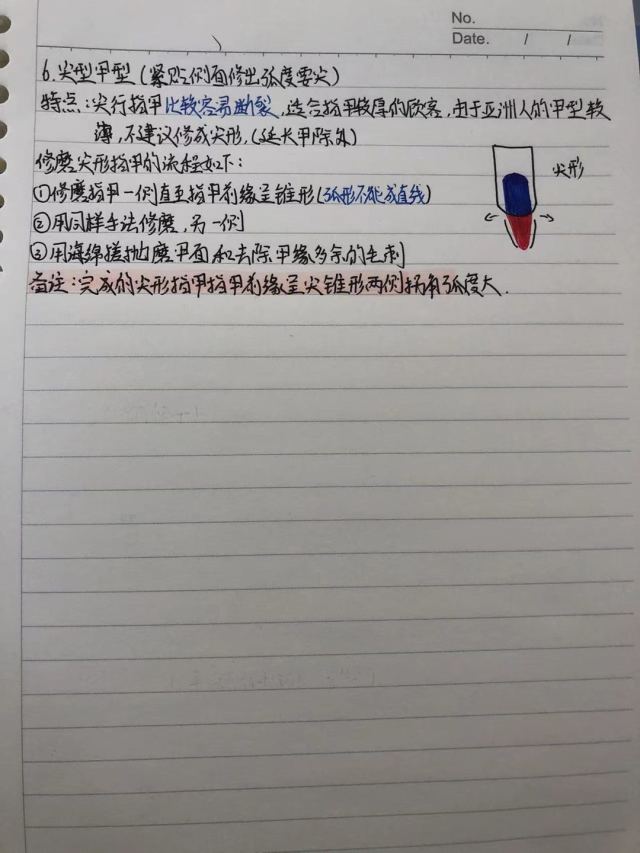 No.
Date. / /
6.尖型甲型(紧贴侧面修出弧度要尖)
特点:尖行指甲比较容易断裂,适合指甲较厚的顾客,由于亚洲人的甲型较
薄,不建议修成尖形,(延长甲除外)
修磨尖形指甲的流程如下:
尖形
①修磨指甲一侧直至指甲前缘呈锥形(弧形不能成直线)
②用同样手法修磨,另一侧
③用海绵搓抛磨甲面和去除甲缘多余的毛刺
备注:完成的尖形指甲指甲前缘呈尖锥形两侧拐角弧度大.